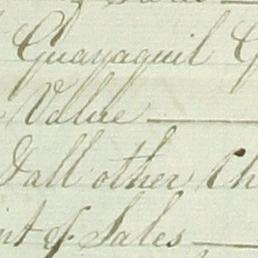 Guayaquil
Value
& all other Ch
nt of Sales